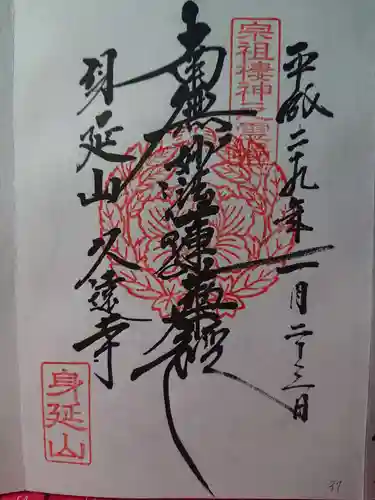 平成二十九年一月二十三日
宗祖棲神之霊
南無妙法蓮華経
身延山久遠寺
身延山
37